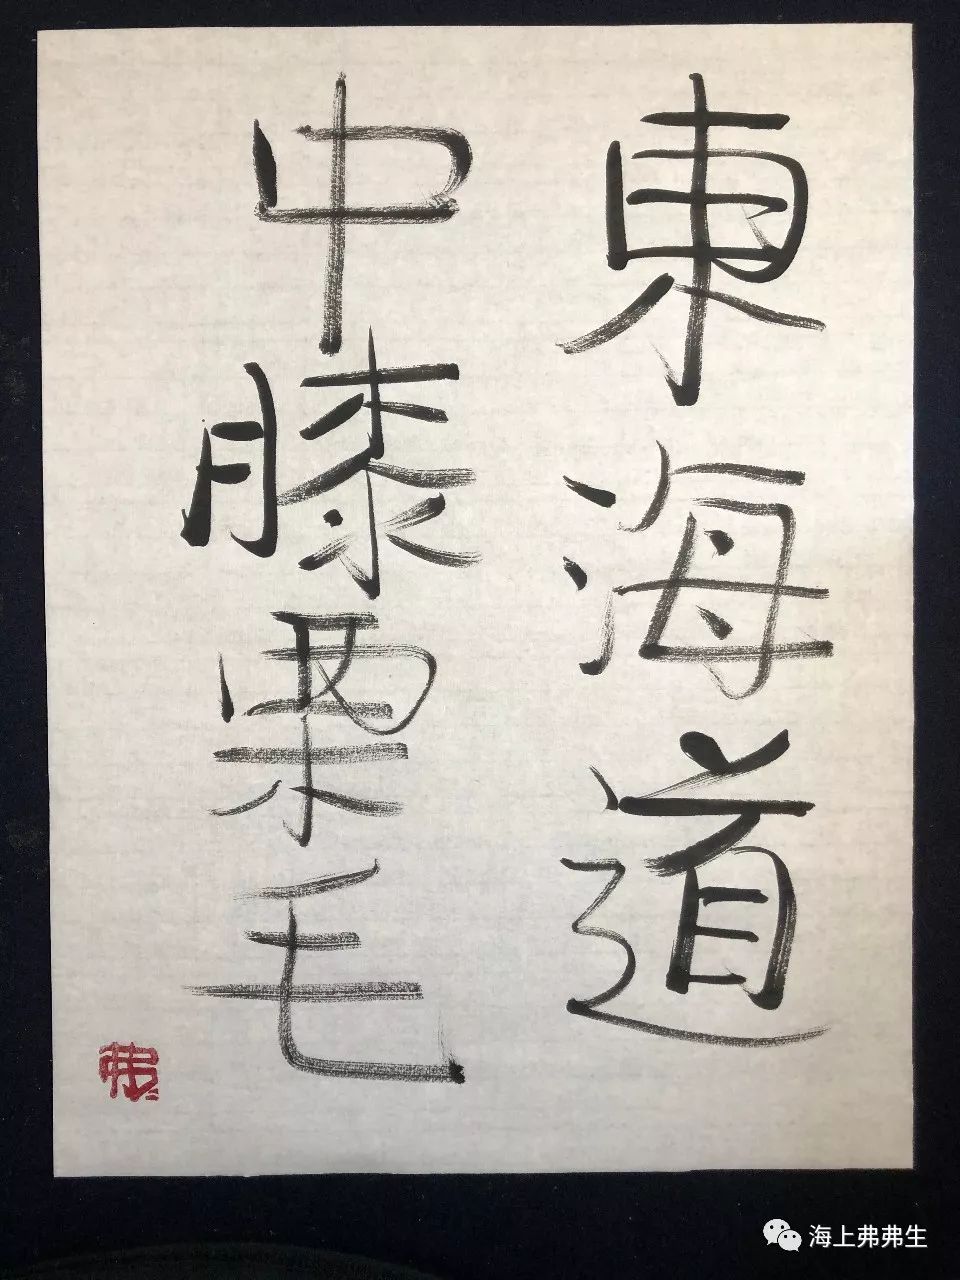 東海道
中膝栗毛
弗
海上弗弗生